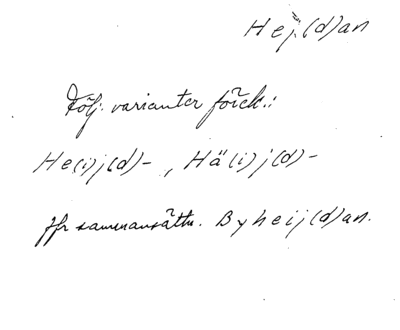 Hej(d)an
Följ. varianter förek.:
He(i)j(d)-, Hä(i)j(d)-
Jfr sammansättn. Byheij(d)an.